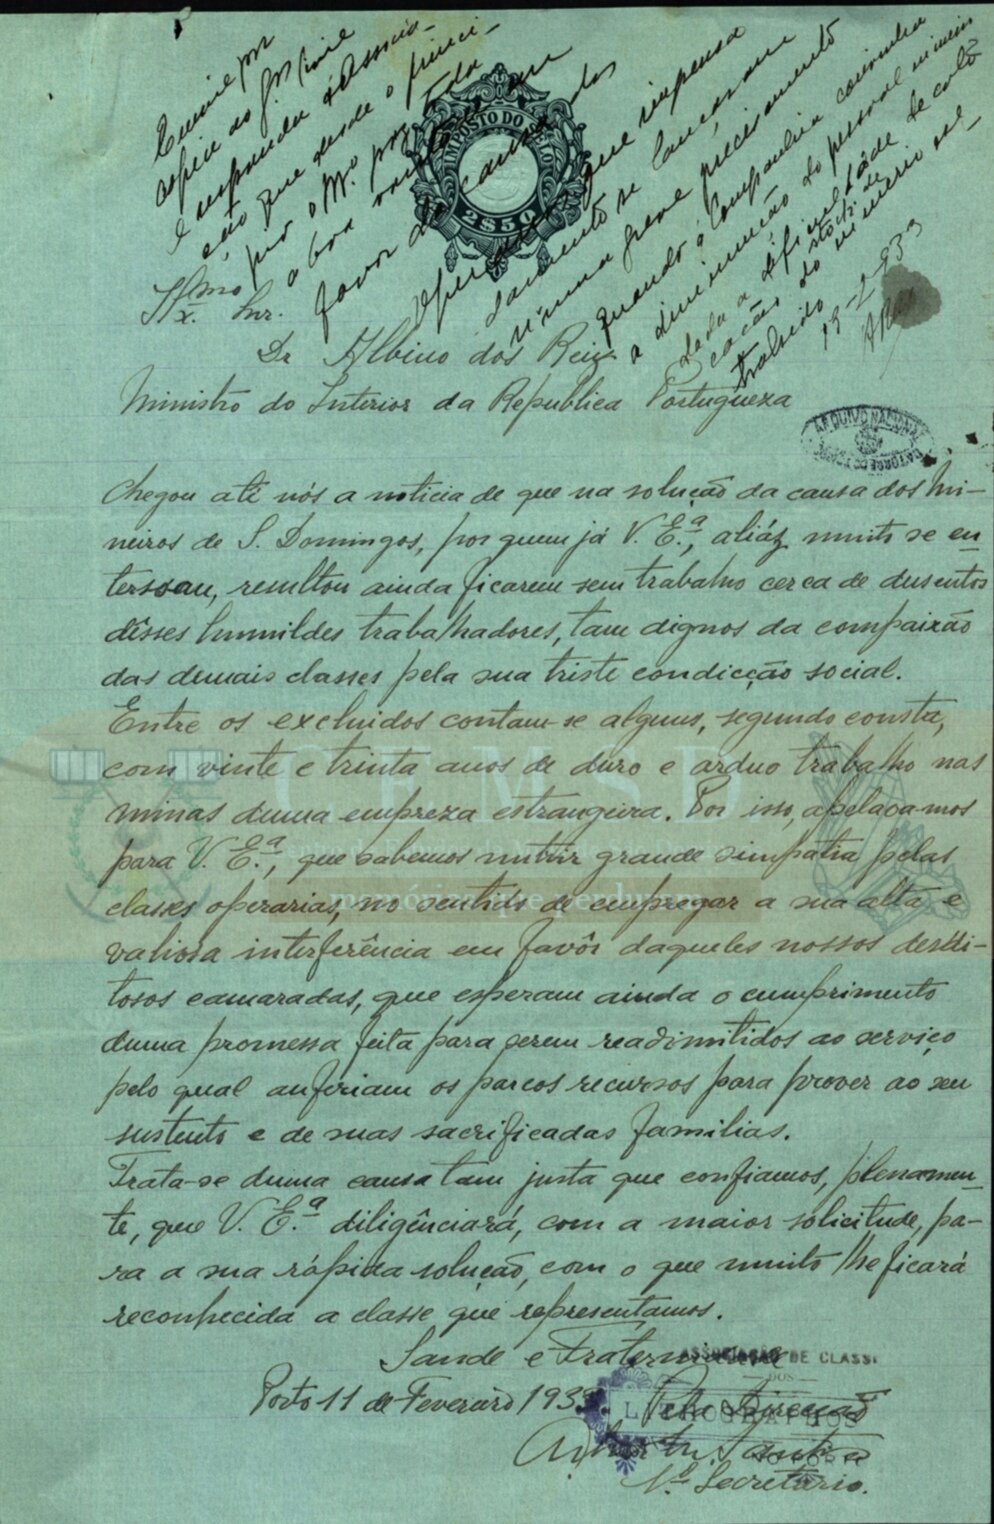 Envie por
copia ao
e responda á Associa-
ção que desde o princi-
pio o M.º poz toda
a boa vontade em
favor da causa dos
operarios que
lançaram
n'uma greve precisamente
quando a Companhia
a diminuição do pessoal mineiro
dada a dificuldade de colo-
cação do stock de
minerio
trahido
19-2-933
IMPOSTO DO SELO
2$50
Ilmo
Ex. Snr.
Dr Albino dos Reis
Ministro do Interior da Republica Portugueza
ARQUIVO NACIONAL
TORRE DO TOMBO
Chegou até nós a noticia de que na solução da causa dos Mi-
neiros de S. Domingos, por quem já V. E.ª, aliáz muito se en-
tersou, resultou ainda ficarem sem trabalho cerca de dusentos
dêsses humildes trabalhadores, tam dignos da compaixão
das demais classes pela sua triste condicção social.
Entre os excluidos contam-se alguns, segundo consta,
com vinte e trinta anos de duro e arduo trabalho nas
minas duma empreza estrangeira. Por isso, apelava-mos
para V. E.ª, que sabemos nutrir grande simpatia pelas
classes operarias, no sentido de empregar a sua alta e
valiosa interferência em favôr daqueles nossos desdi-
tosos camaradas, que esperam ainda o cumprimento
duma promessa feita para serem readimitidos ao serviço
pelo qual auferiam os parcos recursos para prover ao seu
sustento e de suas sacrificadas familias.
Trata-se duma causa tam justa que confiamos, plenamen-
te, que V. E.ª diligênciará, com a maior solicitude, pa-
ra a sua rápida solução, com o que muito lhe ficará
reconhecida a classe que representamos.
Saude e Fraternidade
Porto 11 de Fevereiro 1933
Pela Direcção
ASSOCIAÇÃO DE CLASSE
DOS
LITHOGRAPHOS
DO PORTO
1.º Secretario.
CEMSD
memórias que perduram